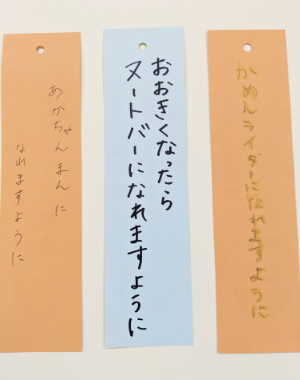 かめんライダーになれますように
おおきくなったら
ヌートバーになれますように
あかちゃんまんに
なれますように